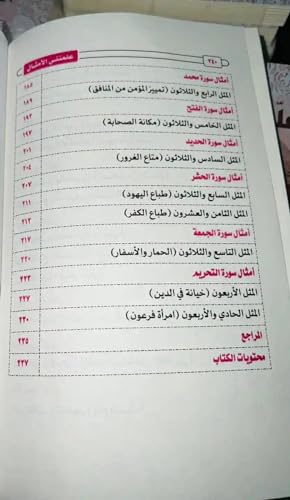 ٢٤٠ علمتني الأمثال
أمثال سورة محمد ١٨٥
المثل الرابع والثلاثون (تمييز المؤمن من المنافق) ١٨٩
أمثال سورة الفتح ١٩٣
المثل الخامس والثلاثون (مكانة الصحابة) ١٩٧
أمثال سورة الحديد ٢٠١
المثل السادس والثلاثون (متاع الغرور) ٢٠٤
أمثال سورة الحشر ٢٠٧
المثل السابع والثلاثون (طباع اليهود) ٢١١
المثل الثامن والعشرون (طباع الكفر) ٢١٣
أمثال سورة الجمعة ٢١٧
المثل التاسع والثلاثون (الحمار والأسفار) ٢٢٠
أمثال سورة التحريم ٢٢٣
المثل الأربعون (خيانة في الدين) ٢٢٧
المثل الحادي والأربعون (امرأة فرعون) ٢٣٠
المراجع ٢٣٥
محتويات الكتاب ٢٣٧